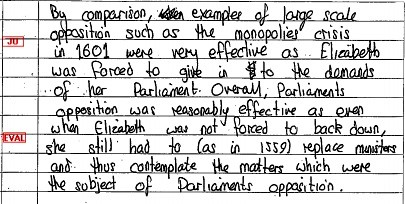 By comparison, examples of large scale
opposition such as the monopolies crisis
JU
in 1601 were very effective as Elizabeth
was forced to give in to the demands
of her Parliament. Overall, Parliaments
opposition was reasonably effective as even
when Elizabeth was not forced to back down,
EVAL
she still had to (as in 1559) replace ministers
and thus contemplate the matters which were
the subject of Parliaments opposition.